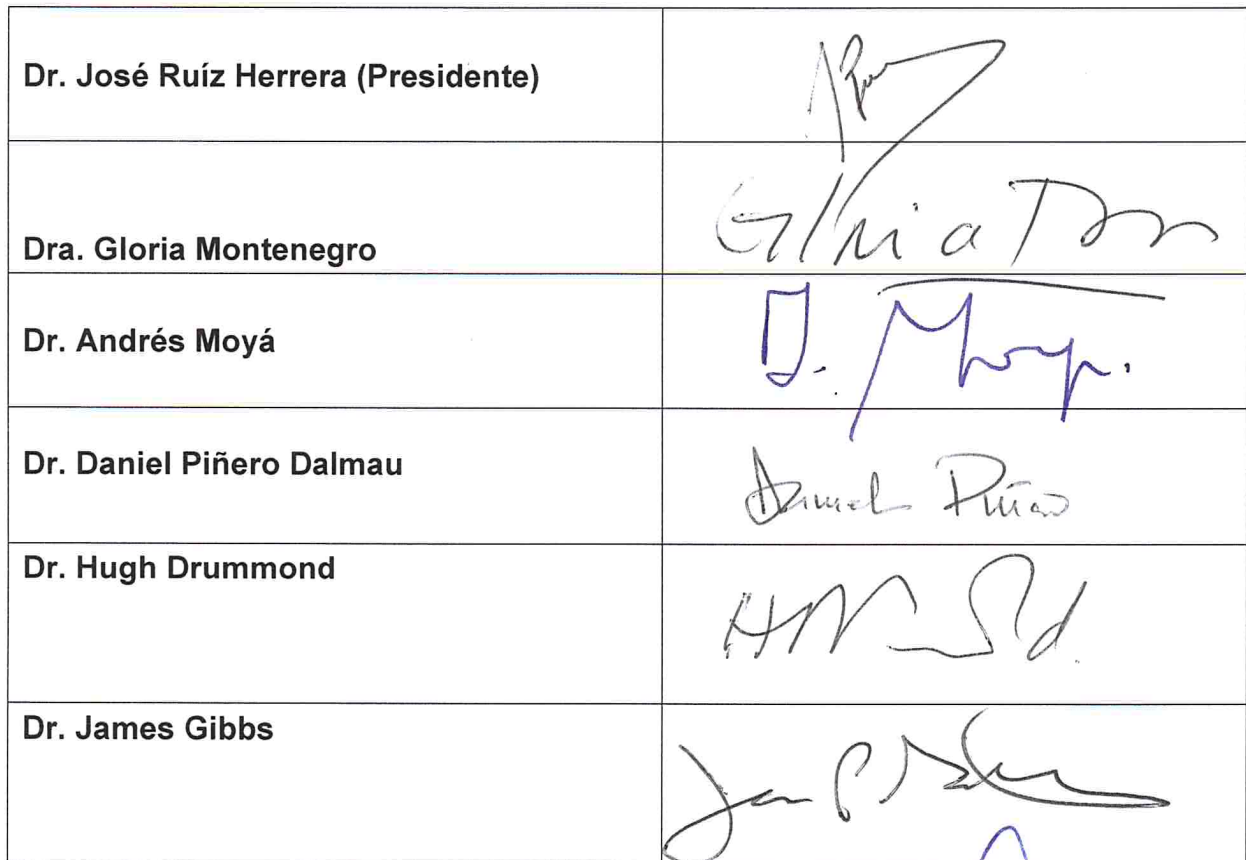 Dr. José Ruíz Herrera (Presidente)
Dra. Gloria Montenegro
Gloria
Dr. Andrés Moyá
Dr. Daniel Piñero Dalmau
Daniel Piñero
Dr. Hugh Drummond
Dr. James Gibbs